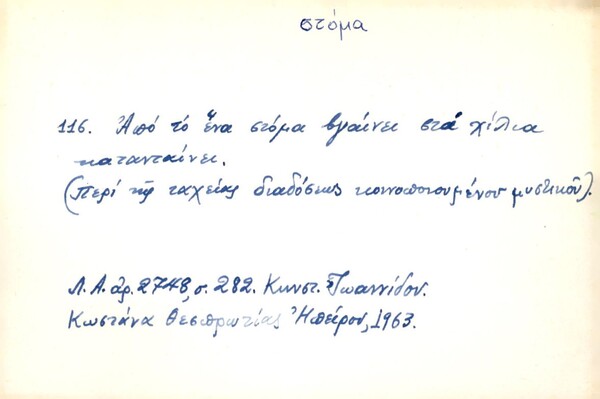 στόμα
116. Ἀπό τό ἕνα στόμα βγαίνει στά χίλια
κατανταίνει.
(Περί τῆς ταχείας διαδόσεως κοινοποιουμένου μυστικοῦ).
Λ.Α. ἀρ. 2748, σ. 282. Κωνστ. Ἰωαννίδου.
Κωστάνα Θεσπρωτίας Ἠπείρου, 1963.